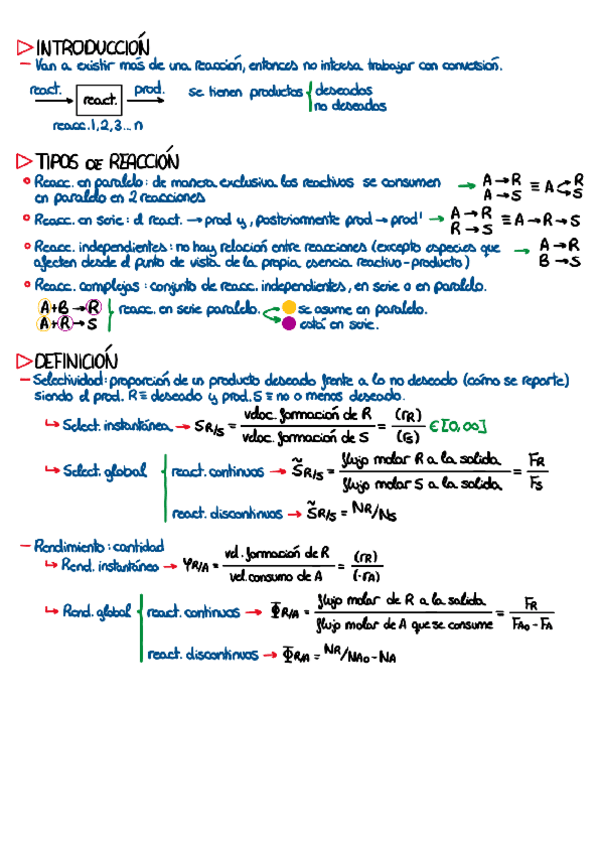 ▷ INTRODUCCIÓN
– Van a existir más de una reacción, entonces no interesa trabajar con conversión.
react. → react. → prod. se tienen productos { deseados
no deseados
reacc. 1, 2, 3... n
▷ TIPOS DE REACCIÓN
° Reacc. en paralelo: de manera exclusiva los reactivos se consumen → A→R ≡ A < R
en paralelo en 2 reacciones A→S S
° Reacc. en serie: el react. → prod y, posteriormente prod → prod' → A→R ≡ A→R→S
R→S
° Reacc. independientes: no hay relación entre reacciones (excepto especies que → A→R
afecten desde el punto de vista de la propia esencia reactivo-producto) B→S
° Reacc. complejas: conjunto de reacc. independientes, en serie o en paralelo.
A+B→R } reacc. en serie paralelo. se asume en paralelo.
A+R→S está en serie.
▷ DEFINICIÓN
– Selectividad: proporción de un producto deseado frente a lo no deseado (cómo se reporte)
siendo el prod. R ≡ deseado y prod. S ≡ no o menos deseado.
↪ Select. instantánea → S R/S = veloc. formación de R / veloc. formación de S = (rR) / (rS) ∈ [0, ∞]
↪ Select. global { react. continuos → S̃ R/S = flujo molar R a la salida / flujo molar S a la salida = FR / FS
react. discontinuos → S̃ R/S = NR/NS
– Rendimiento: cantidad
↪ Rend. instantáneo → φ R/A = vel. formación de R / vel. consumo de A = (rR) / (-rA)
↪ Rend. global { react. continuos → Φ R/A = flujo molar de R a la salida / flujo molar de A que se consume = FR / FA0 - FA
react. discontinuos → Φ R/A = NR/NA0-NA